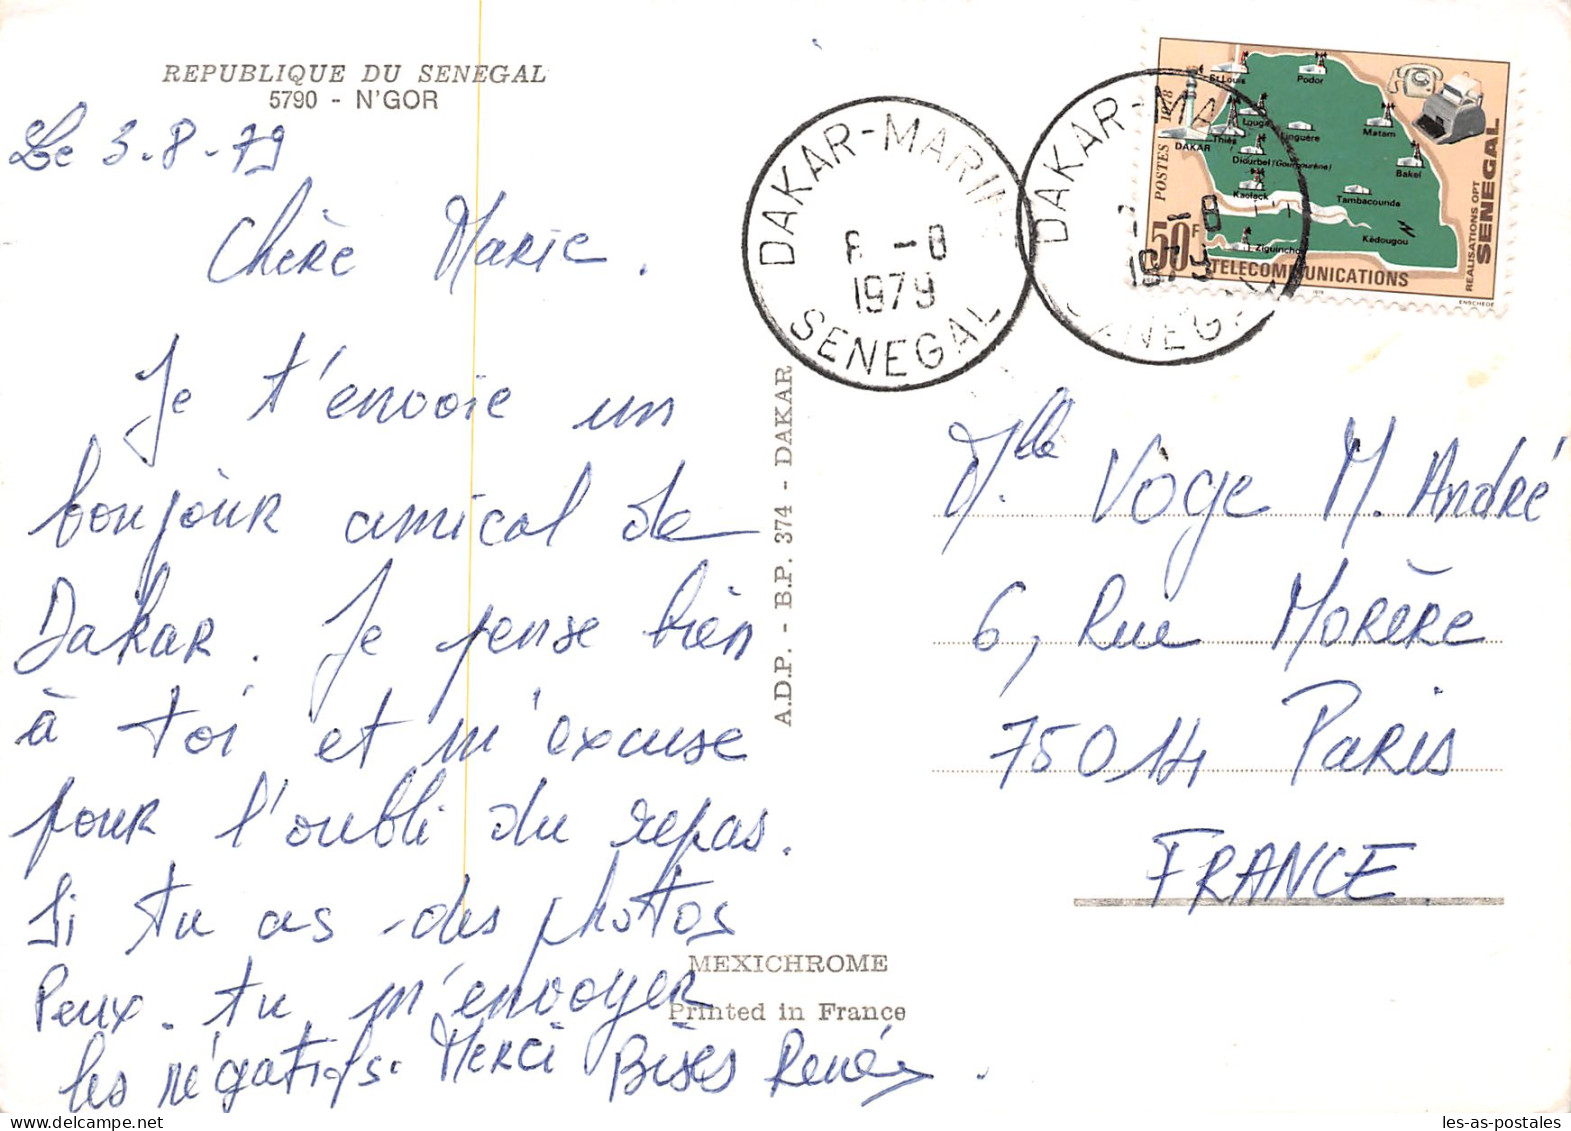 REPUBLIQUE DU SENEGAL
5790 - N'GOR
Le 3-8-79
Chère Marie.
Je t'envoie un
bonjour amical de
Dakar. Je pense bien
à toi et m'excuse
pour l'oubli du repas.
Si tu as des photos
Peux-tu m'envoyer
les négatifs. Merci Bises Renée.
A.D.P. - B.P. 374 - DAKAR
MEXICHROME
Printed in France
DAKAR-MARIN
-8
1979
SENEGAL
DAKAR-MA
-8
1979
St Louis
Podor
Louga
Linguère
Matam
Thiès
DAKAR
Diourbel (Gourgourène)
Bakel
Kaolack
Tambacounda
Ziguinchor
Kédougou
POSTES 1978
50F
TELECOMMUNICATIONS
REALISATIONS OPT
SENEGAL
ENSCHEDE
Mlle Voge M. André
6, Rue Morère
75014 Paris
FRANCE
les-as-postales